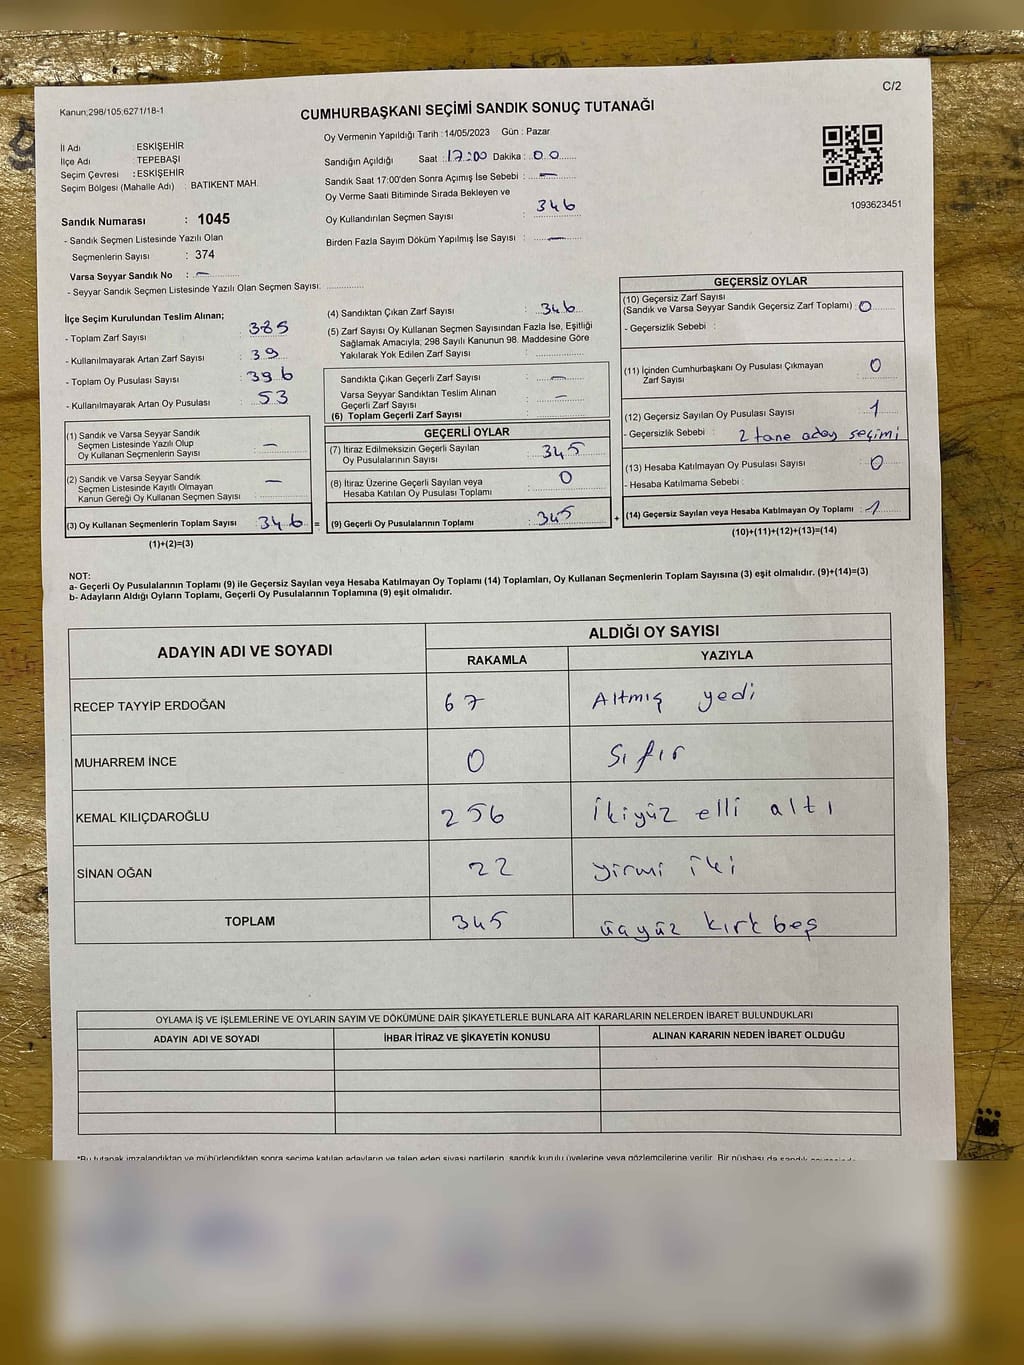 C/2
Kanun:298/105;6271/18-1
CUMHURBAŞKANI SEÇİMİ SANDIK SONUÇ TUTANAĞI
İl Adı : ESKİŞEHİR
İlçe Adı : TEPEBAŞI
Seçim Çevresi : ESKİŞEHİR
Seçim Bölgesi (Mahalle Adı) : BATIKENT MAH.
Oy Vermenin Yapıldığı Tarih :14/05/2023 Gün : Pazar
Sandığın Açıldığı Saat : 17:00 Dakika : 00
Sandık Saat 17:00'den Sonra Açımış İse Sebebi : —
Oy Verme Saati Bitiminde Sırada Bekleyen ve
Oy Kullandırılan Seçmen Sayısı : 346
Birden Fazla Sayım Döküm Yapılmış İse Sayısı : —
1093623451
Sandık Numarası : 1045
- Sandık Seçmen Listesinde Yazılı Olan
Seçmenlerin Sayısı : 374
Varsa Seyyar Sandık No : —
- Seyyar Sandık Seçmen Listesinde Yazılı Olan Seçmen Sayısı:
İlçe Seçim Kurulundan Teslim Alınan;
- Toplam Zarf Sayısı : 385
- Kullanılmayarak Artan Zarf Sayısı : 39
- Toplam Oy Pusulası Sayısı : 396
- Kullanılmayarak Artan Oy Pusulası : 53
(1) Sandık ve Varsa Seyyar Sandık
Seçmen Listesinde Yazılı Olup
Oy Kullanan Seçmenlerin Sayısı : —
(2) Sandık ve Varsa Seyyar Sandık
Seçmen Listesinde Kayıtlı Olmayan
Kanun Gereği Oy Kullanan Seçmen Sayısı : —
(3) Oy Kullanan Seçmenlerin Toplam Sayısı : 346 =
(1)+(2)=(3)
(4) Sandıktan Çıkan Zarf Sayısı : 346
(5) Zarf Sayısı Oy Kullanan Seçmen Sayısından Fazla İse, Eşitliği
Sağlamak Amacıyla, 298 Sayılı Kanunun 98. Maddesine Göre
Yakılarak Yok Edilen Zarf Sayısı :
Sandıkta Çıkan Geçerli Zarf Sayısı : —
Varsa Seyyar Sandıktan Teslim Alınan
Geçerli Zarf Sayısı : —
(6) Toplam Geçerli Zarf Sayısı :
GEÇERLİ OYLAR
(7) İtiraz Edilmeksizin Geçerli Sayılan
Oy Pusulalarının Sayısı : 345
(8) İtiraz Üzerine Geçerli Sayılan veya
Hesaba Katılan Oy Pusulası Toplamı : 0
(9) Geçerli Oy Pusulalarının Toplamı : 345 +
GEÇERSİZ OYLAR
(10) Geçersiz Zarf Sayısı
(Sandık ve Varsa Seyyar Sandık Geçersiz Zarf Toplamı) : 0
- Geçersizlik Sebebi :
(11) İçinden Cumhurbaşkanı Oy Pusulası Çıkmayan
Zarf Sayısı : 0
(12) Geçersiz Sayılan Oy Pusulası Sayısı : 1
- Geçersizlik Sebebi : 2 tane aday seçimi
(13) Hesaba Katılmayan Oy Pusulası Sayısı : 0
- Hesaba Katılmama Sebebi :
(14) Geçersiz Sayılan veya Hesaba Katılmayan Oy Toplamı : 1
(10)+(11)+(12)+(13)=(14)
NOT:
a- Geçerli Oy Pusulalarının Toplamı (9) ile Geçersiz Sayılan veya Hesaba Katılmayan Oy Toplamı (14) Toplamları, Oy Kullanan Seçmenlerin Toplam Sayısına (3) eşit olmalıdır. (9)+(14)=(3)
b- Adayların Aldığı Oyların Toplamı, Geçerli Oy Pusulalarının Toplamına (9) eşit olmalıdır.
ADAYIN ADI VE SOYADI ALDIĞI OY SAYISI
RAKAMLA YAZIYLA
RECEP TAYYİP ERDOĞAN 67 Altmış yedi
MUHARREM İNCE 0 Sıfır
KEMAL KILIÇDAROĞLU 256 ikiyüz elli altı
SİNAN OĞAN 22 yirmi iki
TOPLAM 345 üçyüz kırk beş
OYLAMA İŞ VE İŞLEMLERİNE VE OYLARIN SAYIM VE DÖKÜMÜNE DAİR ŞİKAYETLERLE BUNLARA AİT KARARLARIN NELERDEN İBARET BULUNDUKLARI
ADAYIN ADI VE SOYADI İHBAR İTİRAZ VE ŞİKAYETİN KONUSU ALINAN KARARIN NEDEN İBARET OLDUĞU
*Bu tutanak imzalandıktan ve mühürlendikten sonra seçime katılan adayların ve talep eden siyasi partilerin, sandık kurulu üyelerine veya gözlemcilerine verilir. Bir nüshası da sandık